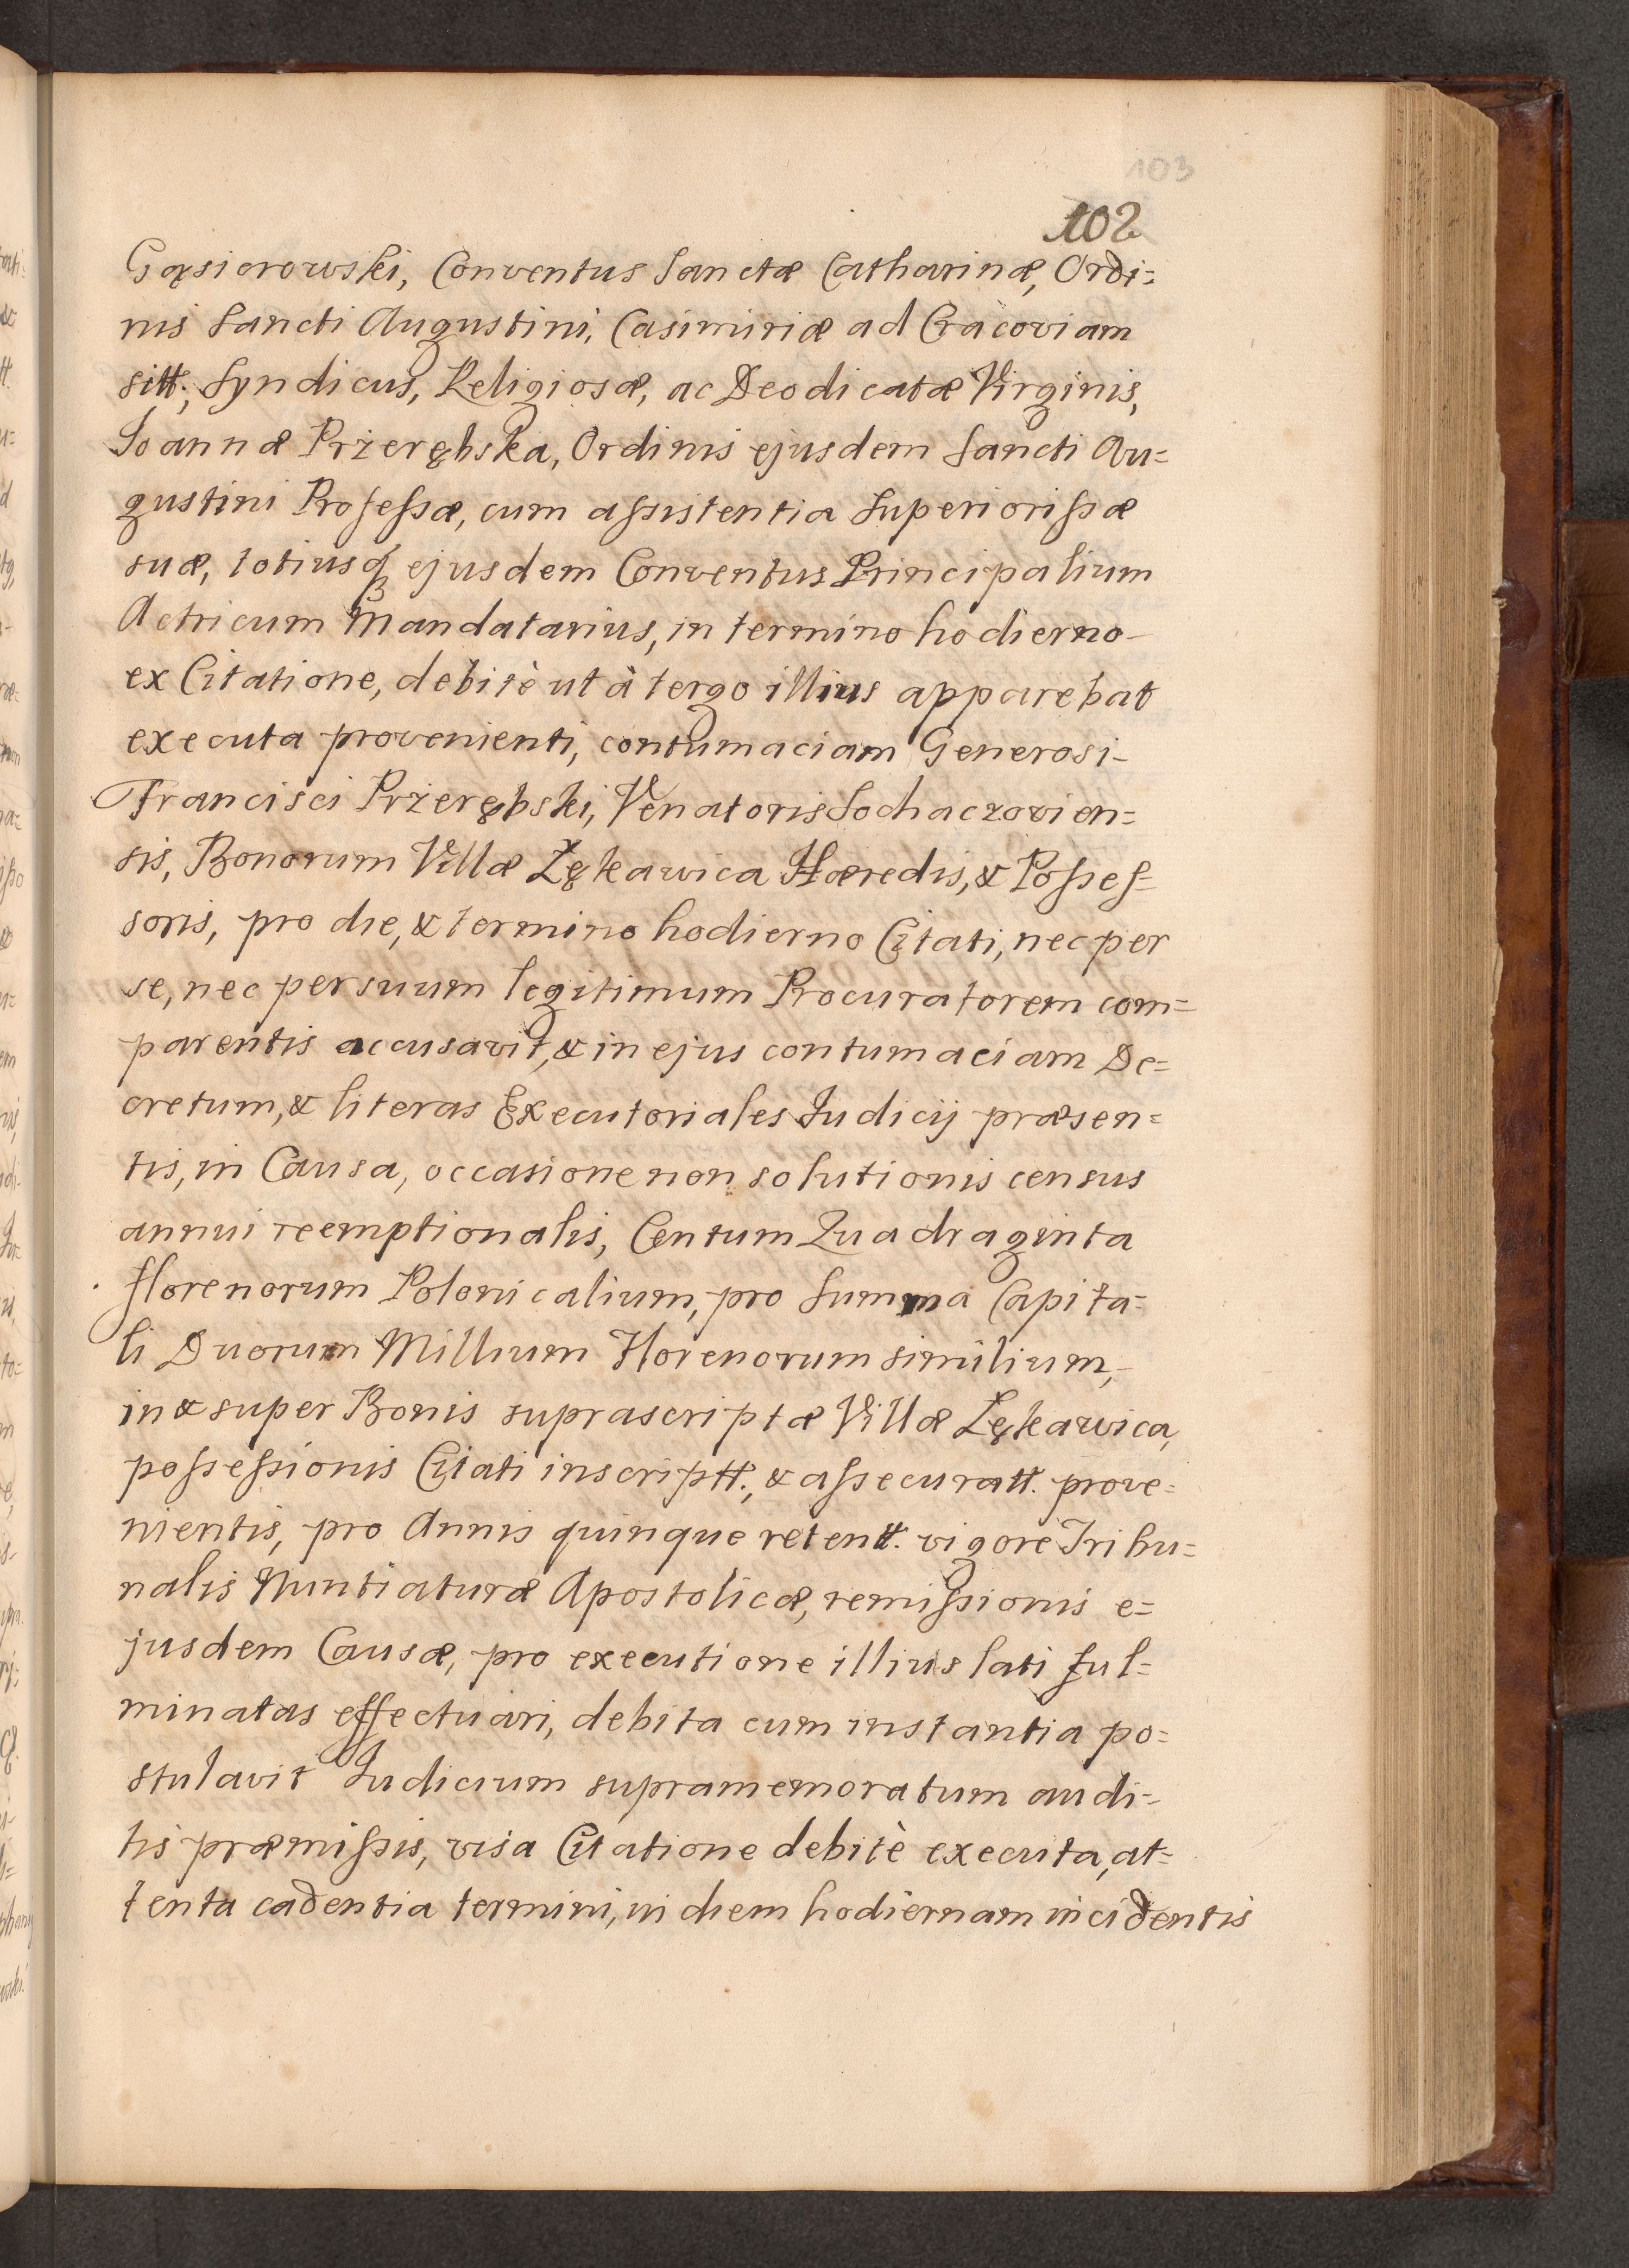 103
102
Gąsiorowski, Conventus Sanctæ Catharinæ, Ordi=
nis Sancti Augustini, Casimiriæ ad Cracoviam
sitt:, Syndicus, Religiosæ, ac Deodicatæ Virginis,
Joannæ Przerębska, Ordinis ejusdem Sancti Au=
gustini Professæ, cum assistentia Superiorissæ
suæ, totiusq; ejusdem Conventus Principalium
Actricum Mandatarius, in termino hodierno
ex Citatione, debitè ut à tergo illius apparebat
executa provenienti, contumaciam Generosi
Francisci Przerębski, Venatoris Sochaczovien=
sis, Bonorum Villæ Łękawica Hæredis, & Posses=
soris, pro die, & termino hodierno Citati, nec per
se, nec per suum legitimum Procuratorem com=
parentis accusavit, & in ejus contumaciam De=
cretum, & literas Executoriales Judicij præsen=
tis, in Causa, occasione non solutionis census
annui reemptionalis, Centum Quadraginta
florenorum Polonicalium, pro Summa Capita=
li Duorum Millium Florenorum similium,
in & super Bonis suprascriptæ Villæ Łękawica,
possessionis Citati inscriptt:, & assecuratt. prove=
nientis, pro Annis quinque retentt. vigore Tribu=
nalis Nuntiaturæ Apostolicæ, remissionis e=
jusdem Causæ, pro executione illius lati ful=
minatas effectuari, debita cum instantia po=
stulavit Judicium supramemoratum audi=
tis præmissis, visa Citatione debitè executa, at=
tenta cadentia termini, in diem hodiernam incidentis